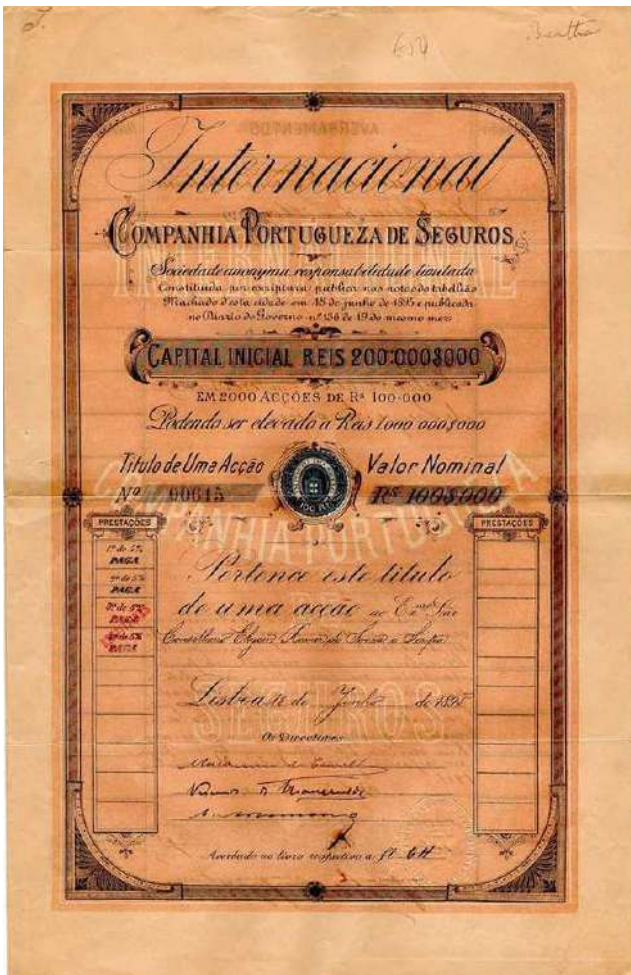 Internacional
COMPANHIA PORTUGUEZA DE SEGUROS
Sociedade anonyma responsabilidade limitada
Constituida por escriptura publica nas notas do tabellião
Machado d'esta cidade em 18 de junho de 1895 e publicada
no Diario do Governo nº 136 de 19 do mesmo mez
CAPITAL INICIAL REIS 200:000$000
EM 2000 ACÇÕES DE Rs 100.000
Podendo ser elevado a Reis 1.000.000$000
Titulo de Uma Acção
Valor Nominal
Nº 00615
Rs 100$000
COMPANHIA PORTUGUEZA
DE
SEGUROS
PRESTAÇÕES
PRESTAÇÕES
1ª de 5%
PAGA
2ª de 5%
PAGA
3ª de 5%
PAGA
4ª de 5%
PAGA
Pertence este titulo
de uma acção ao Exmo Snr
Conselheiro
Lisboa de Junho de 1895
Os Directores
Averbado no livro respectivo a fl